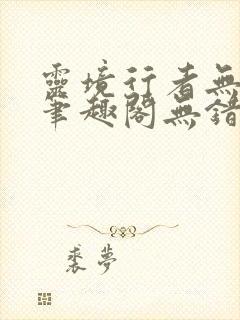 靈境行者無
筆趣閣無錯
裘夢